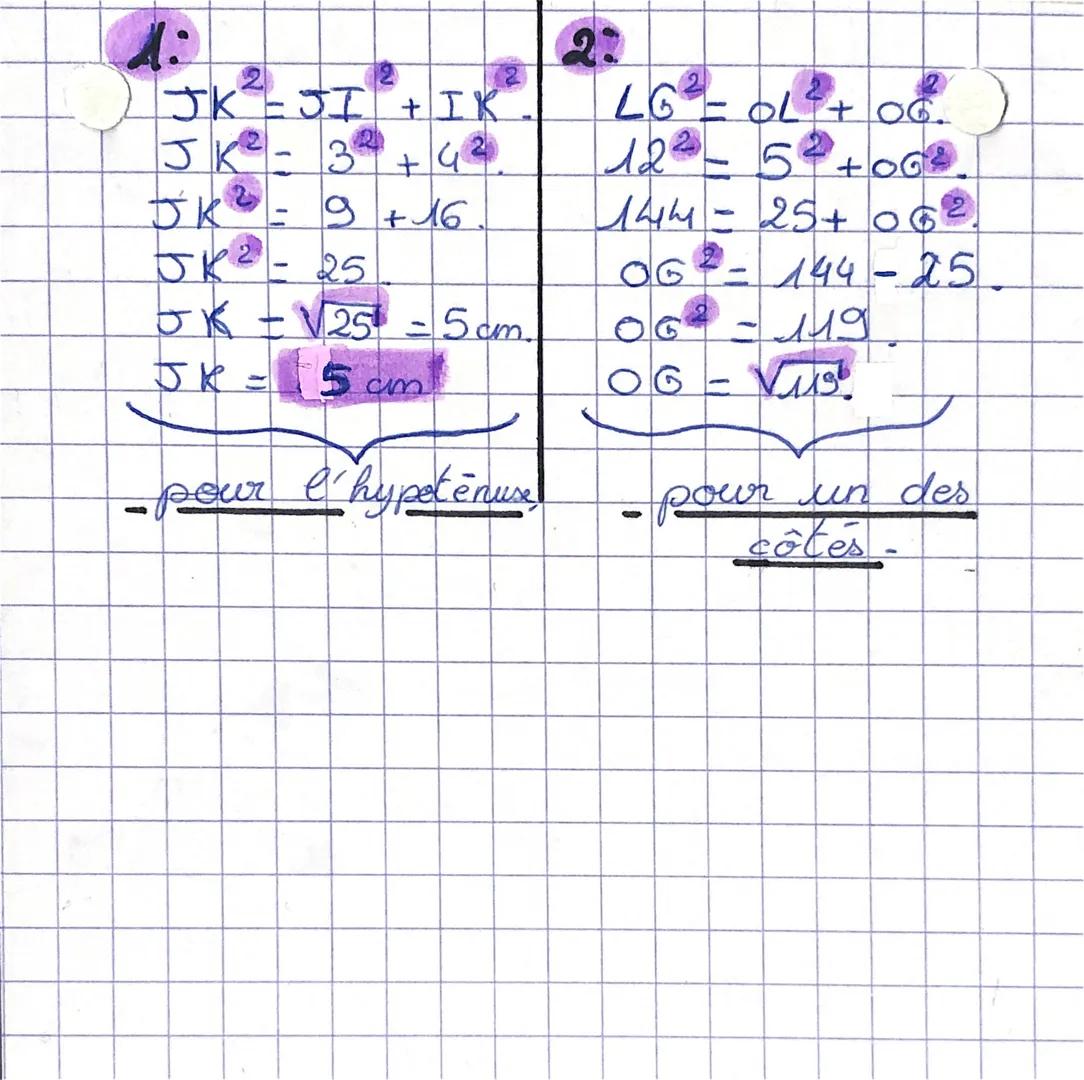 1:
JK² = JI² + IK².
JK² = 3² + 4².
JK² = 9 + 16.
JK² = 25.
JK = √25 = 5 cm.
JK = 5 cm
- pour l'hypoténuse,
2:
LG² = OL² + OG².
12² = 5² + OG².
144 = 25 + OG².
OG² = 144 - 25.
OG² = 119.
OG = √119.
- pour un des
côtés -